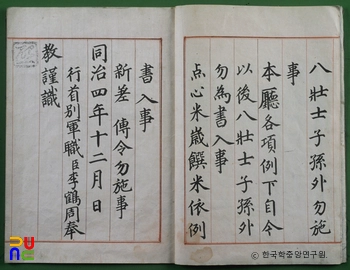 八壯士子孫外勿施
事
本廳各項例下自今
以後八壯士子孫外
勿為書入事
点心米歲饌米依例
書入事
新差 傳令勿施事
同治四年十二月日
行首別軍職臣李鶴周奉
教謹識
ⓒ한국학중앙연구원